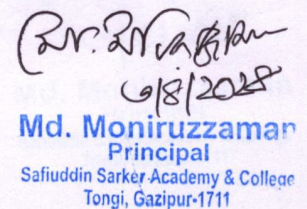 Md. Moniruzzaman
Principal
Safiuddin Sarker Academy & College
Tongi, Gazipur-1711